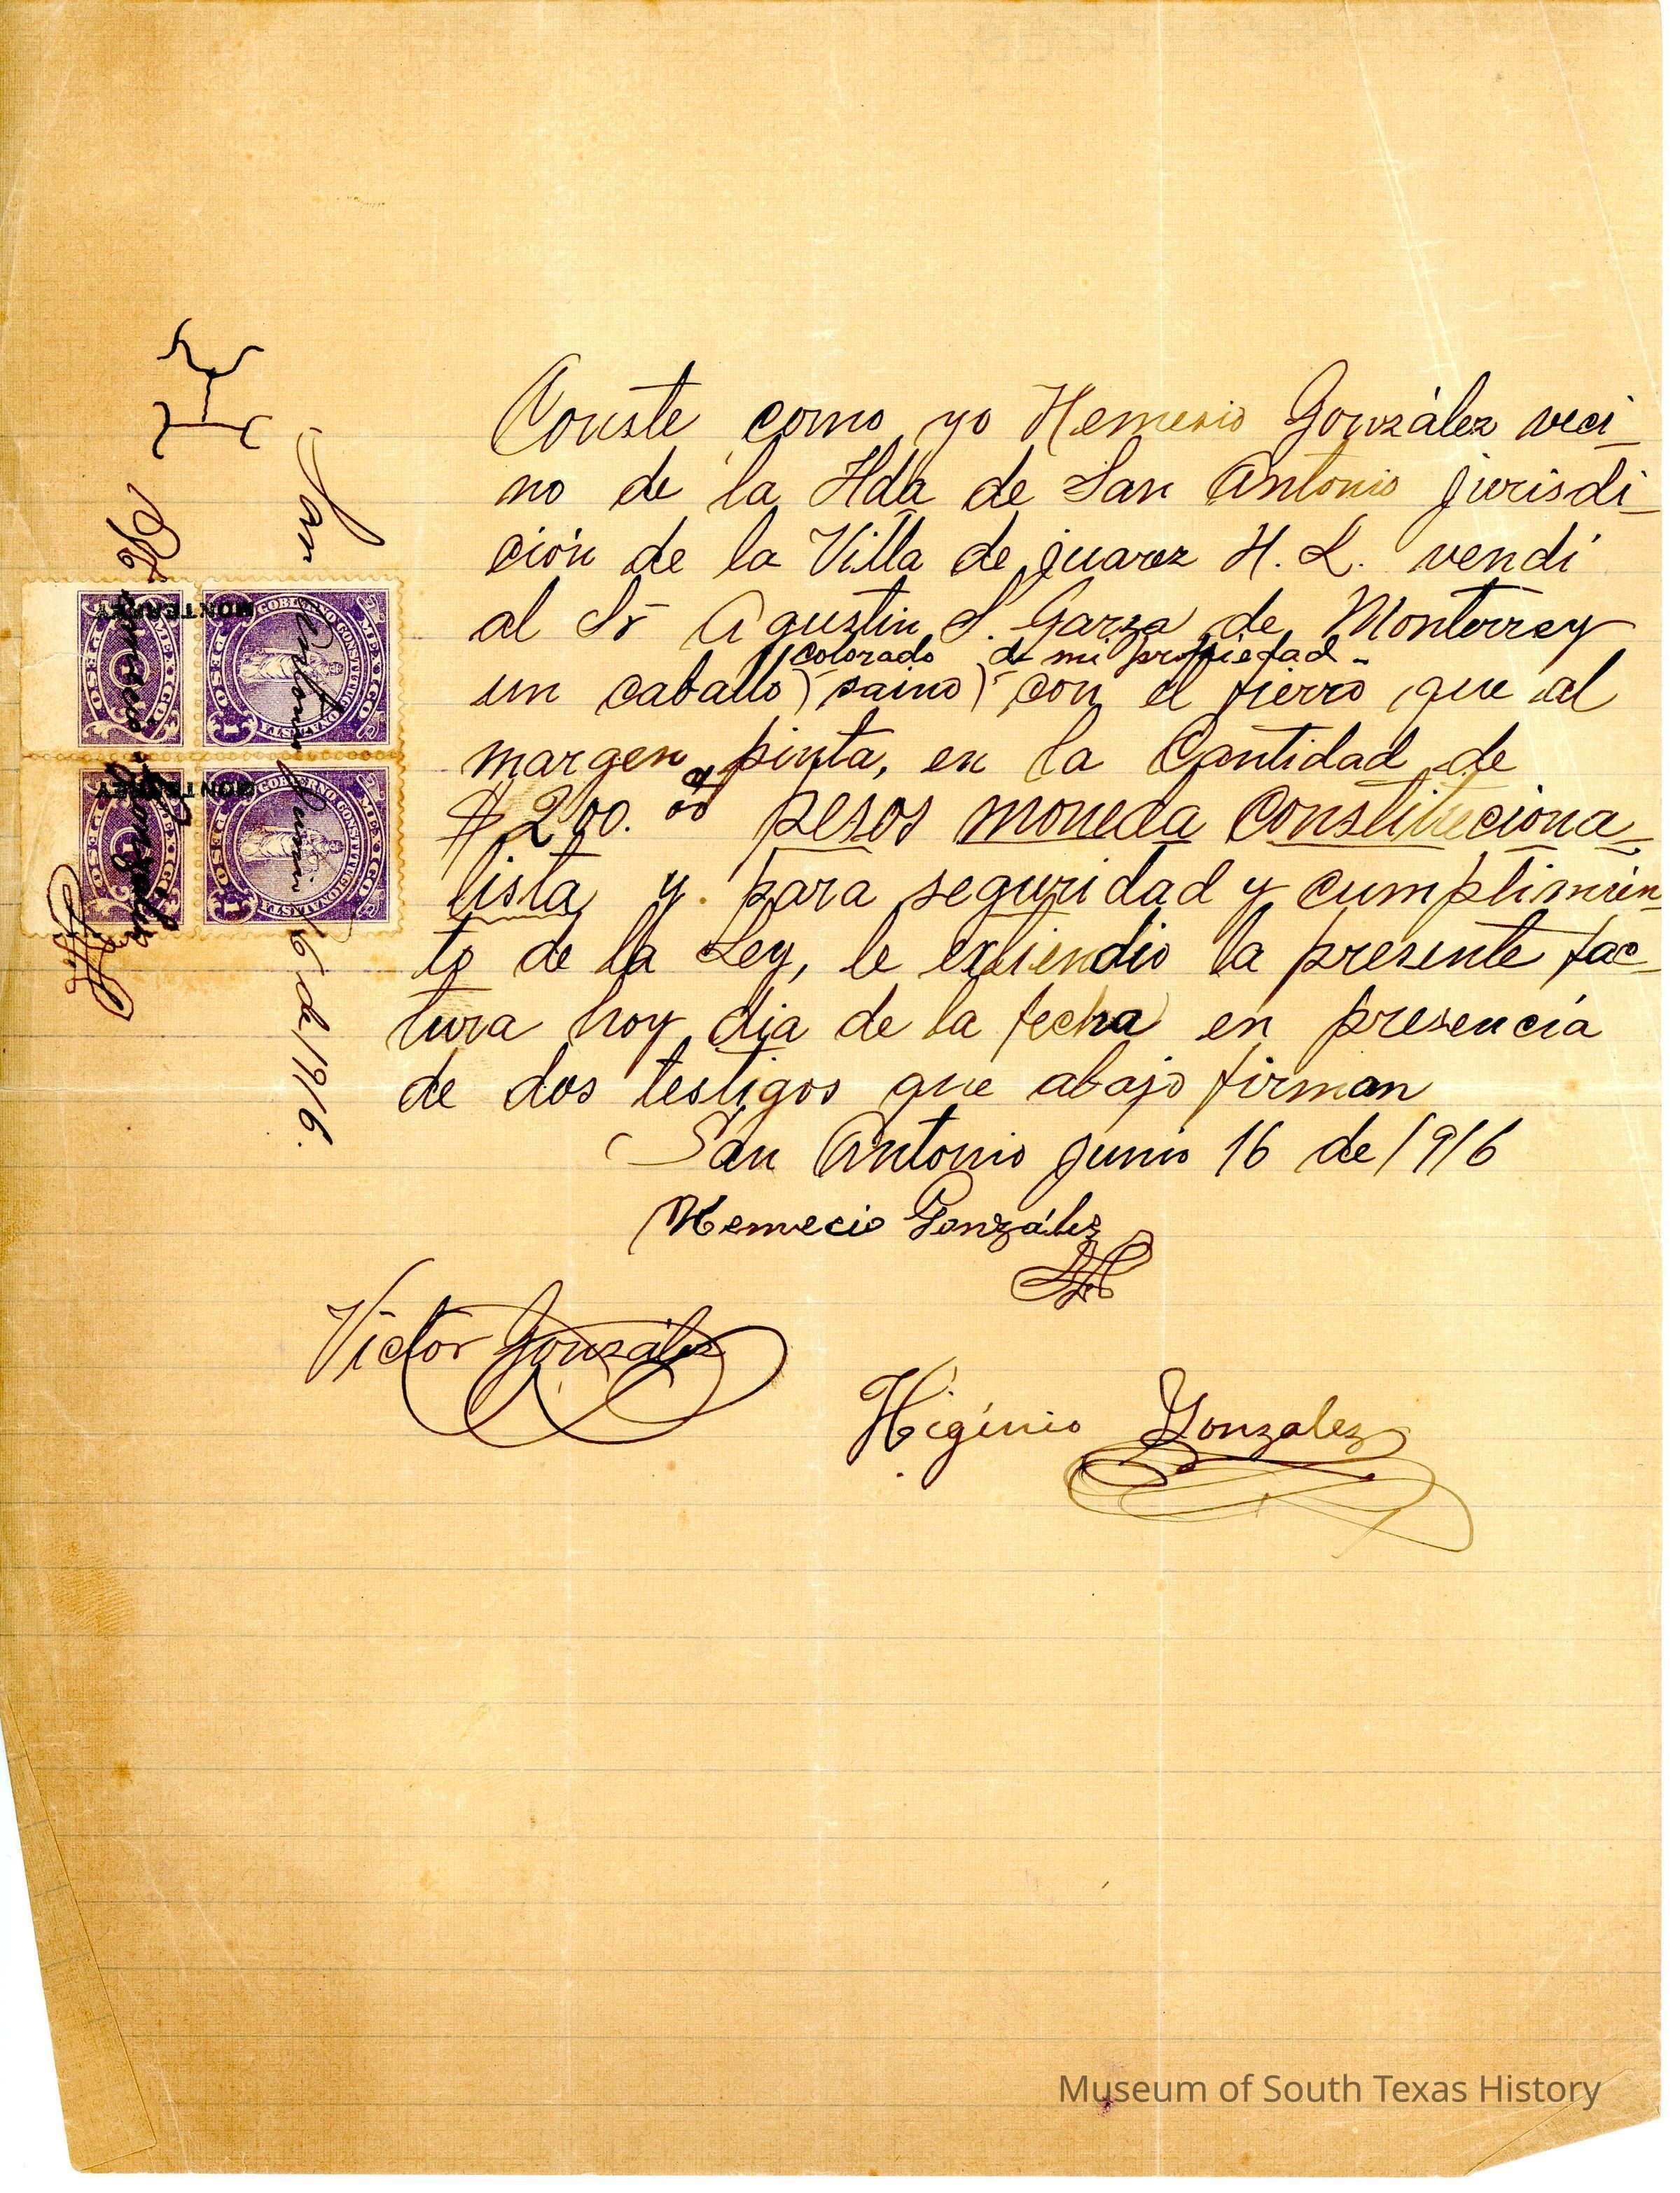 Conste como yo Nemesio González veci-
no de la Hda de San Antonio jurisdi-
ción de la Villa de juarez N. L. vendi
al Sr Agustin S. Garza de Monterrey
colorado de mi propiedad
un caballo (saino) con el fierro que al
margen pinta, en la Cantidad de
$200.00 pesos moneda Constituciona-
lista y para seguridad y cumplimien-
to de la Ley, le extiendio la presente fac-
tura hoy dia de la fecha en presencia
de dos testigos que abajo firman
San Antonio junio 16 de 1916
Nemecio González
Victor González
Higinio Gonzalez
San Antonio Junio 16 de 1916.
Nemecio González
MONTERREY
MONTERREY
GOBIERNO CONSTITUCIONALISTA
GOBIERNO CONSTITUCIONALISTA
Museum of South Texas History